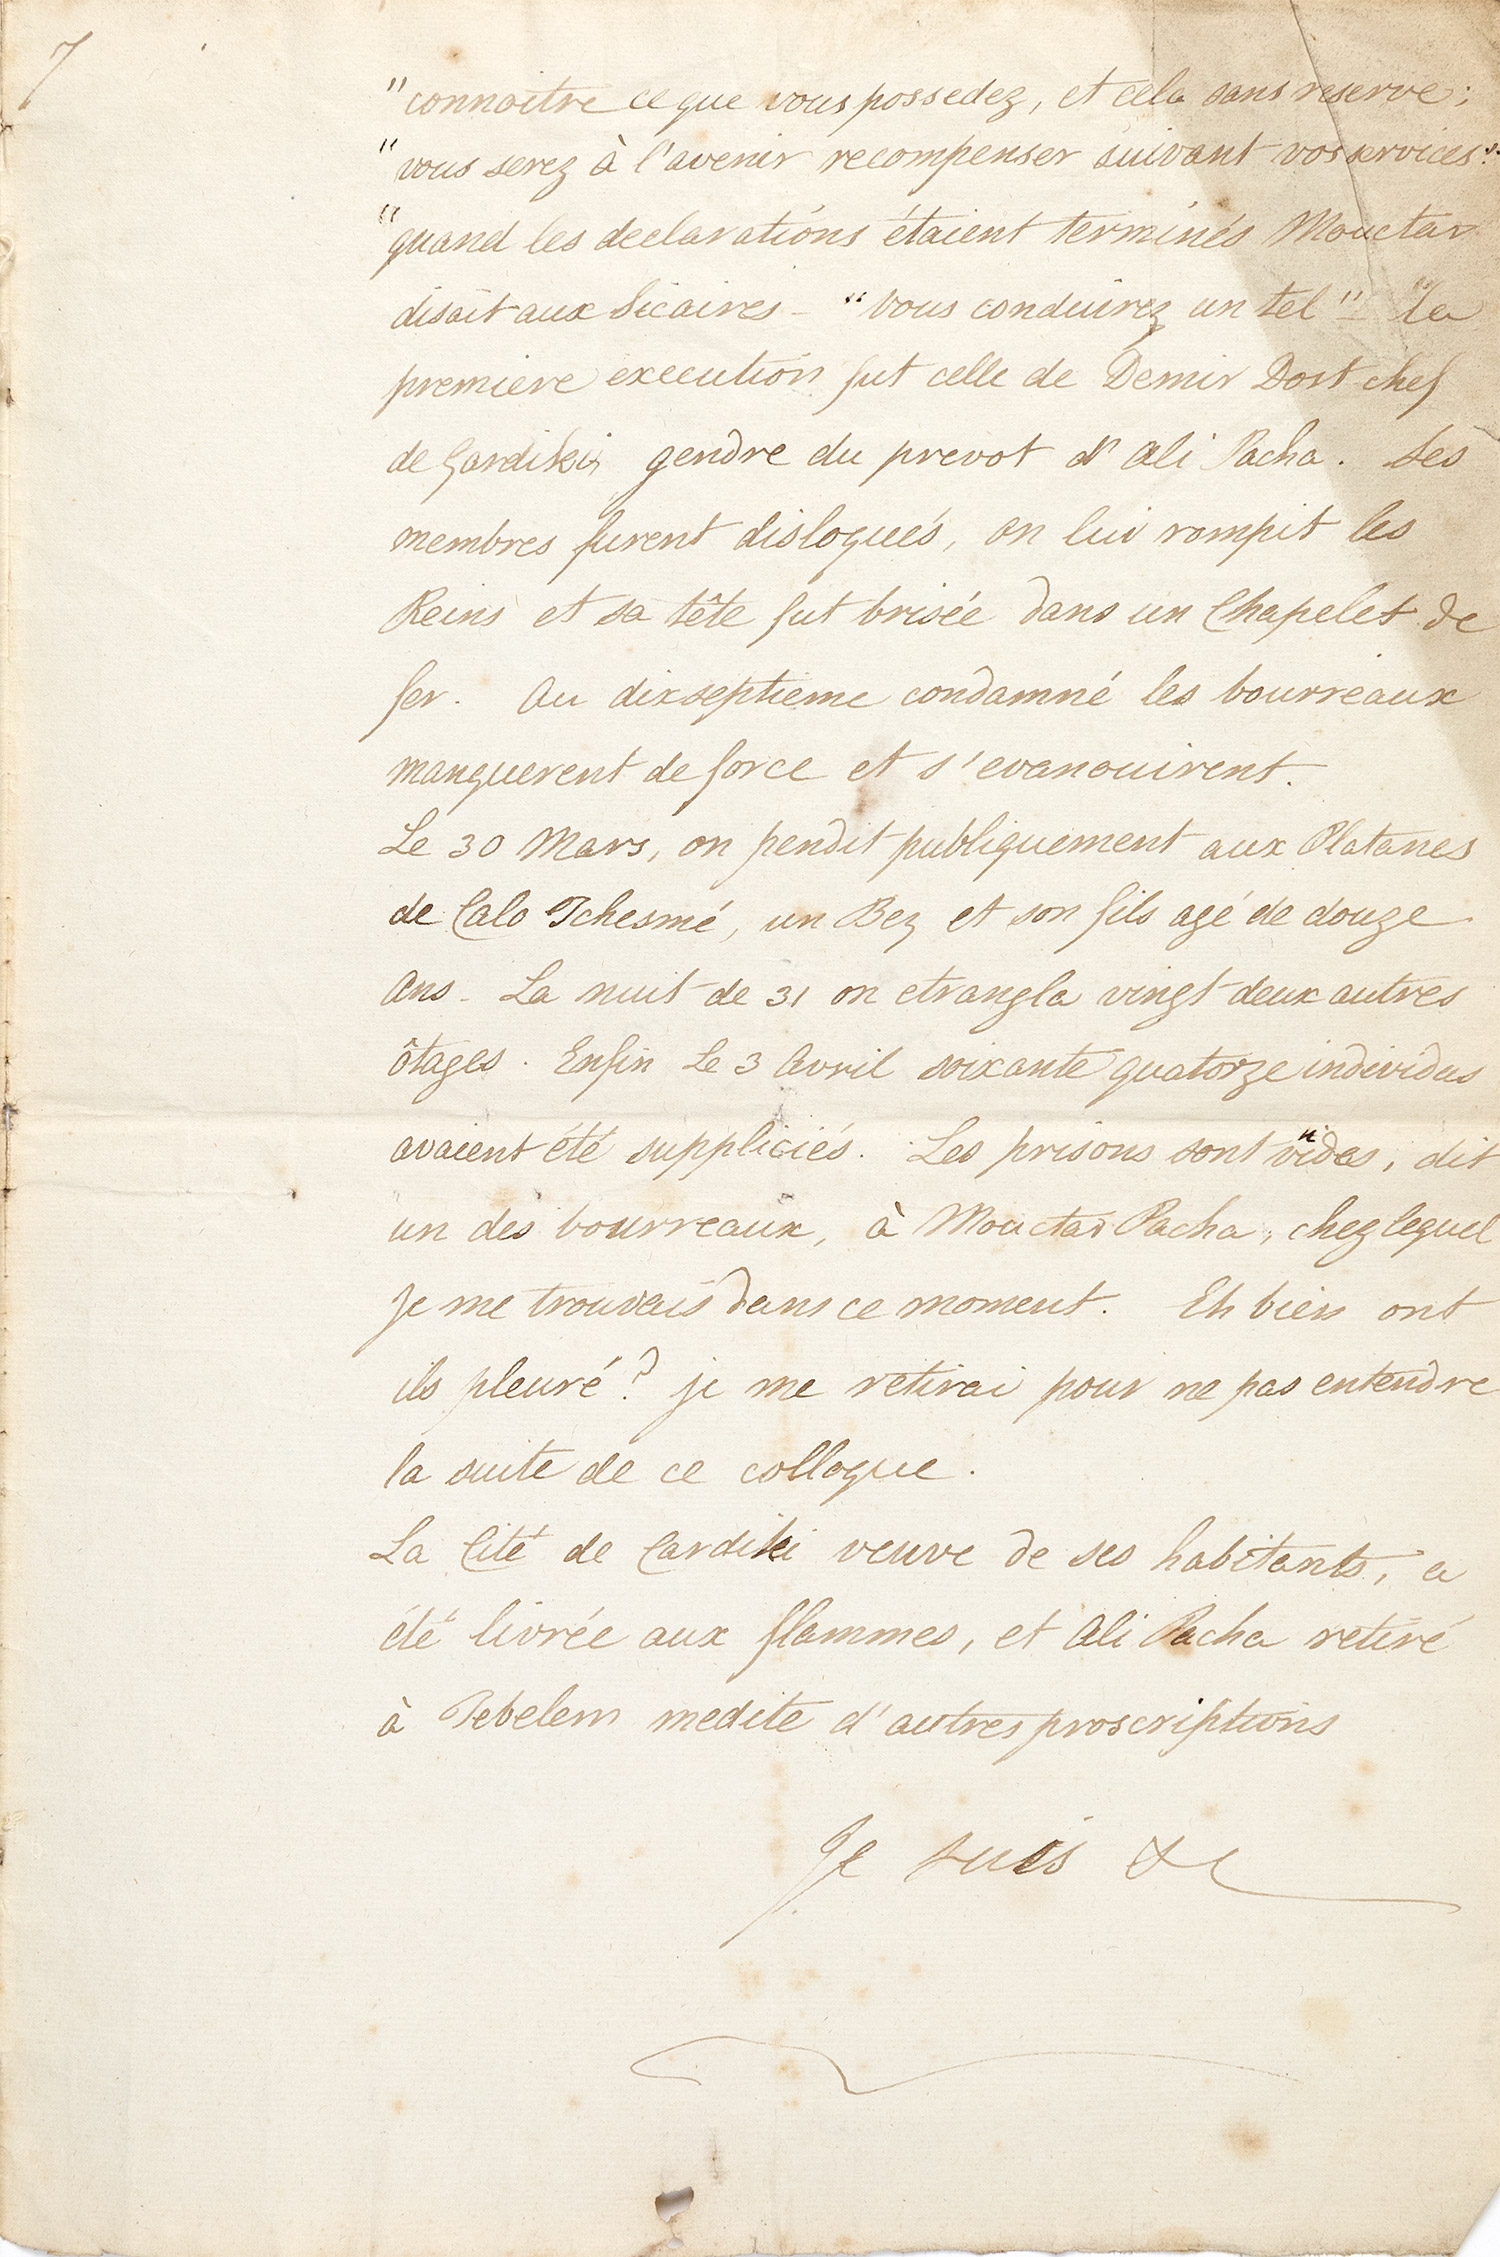 7
"connoitre ce que vous possedez, et cela sans reserve;
"vous serez à l'avenir recompenser suivant vos services."
"quand les declarations étaient terminés Mouctar
disait aux Sicaires – "Vous conduirez un tel" "La
premiere execution fut celle de Demir Dost chef
de Gardiki, gendre du prevot d'Ali Pacha. Ses
membres furent disloqués, on lui rompit les
Reins et sa tête fut brisée dans un Chapelet de
fer. Au dixseptieme condamné les bourreaux
manquerent de force et s'evanouirent.
Le 30 Mars, on pendit publiquement aux Platanes
de Calo Tchesmé, un Bey et son fils agé de douze
Ans – La nuit de 31 on etrangla vingt deux autres
ôtages. Enfin Le 3 Avril soixante quatorze individus
avaient été suppliciés. Les prisons sont vides, dit
un des bourreaux, à Mouctar Pacha, chez lequel
Je me trouvais dans ce moment. Eh bien ont
ils pleuré? je me retirai pour ne pas entendre
la suite de ce colloque.
La Cité de Cardiki veuve de ses habitants, a
été livrée aux flammes, et Ali Pacha retiré
à Tebelem medite d'autres proscriptions
Je suis &c